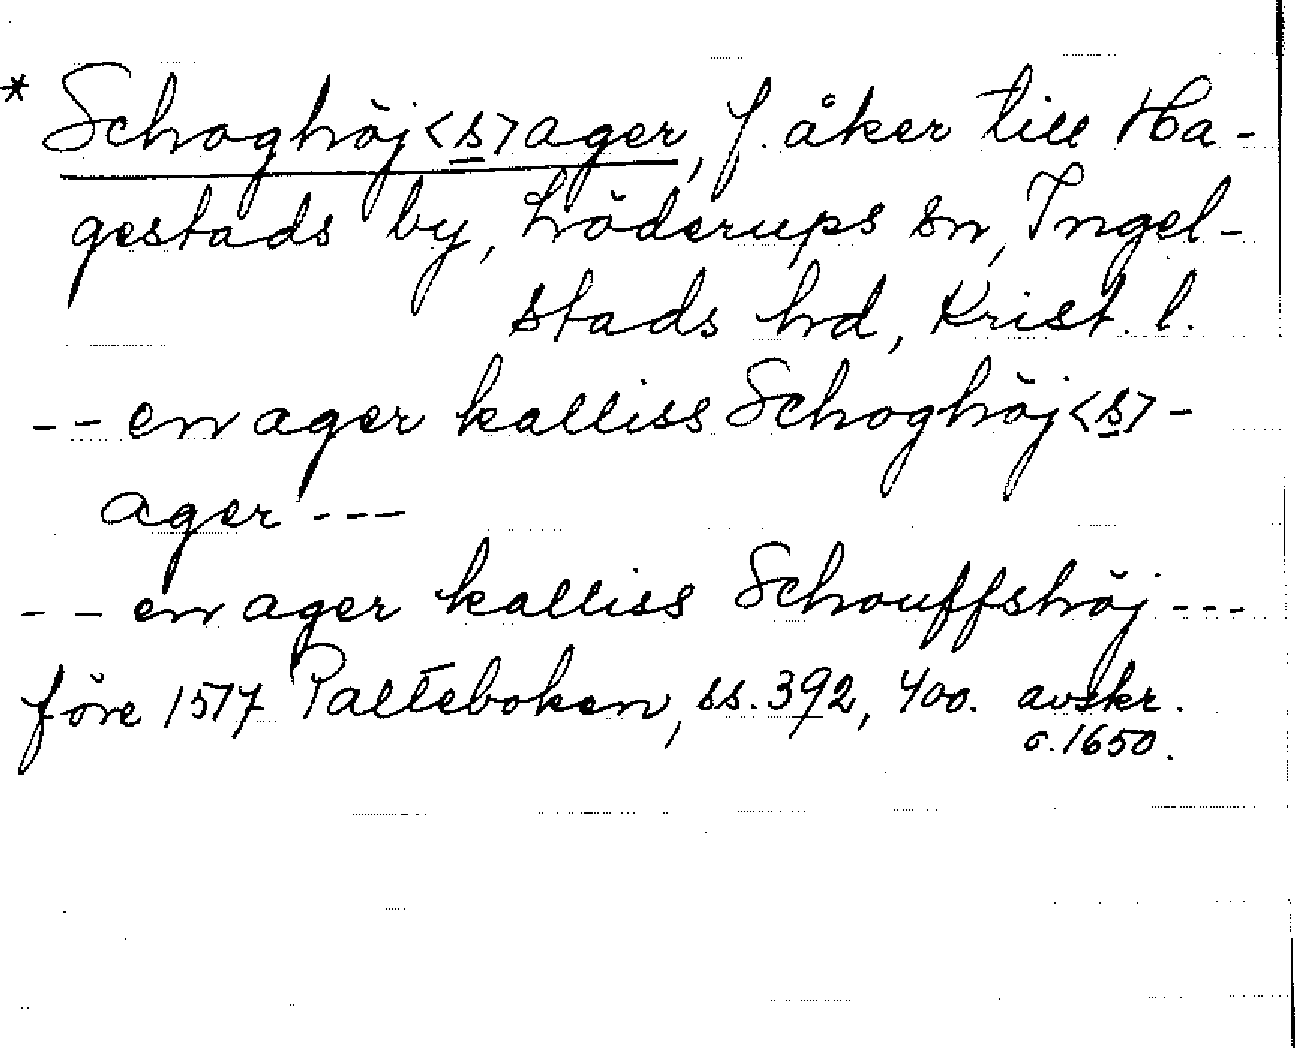 * Schoghöj<s>ager, f. åker till Ha-
gestads by, Löderups sn, Ingel-
stads hd, Krist. l.
-- en ager kalliss Schoghöj<s>-
ager ---
-- en ager kalliss Schouffshöj ---
före 1517 Palteboken, ss. 392, 400. avskr.
c. 1650.